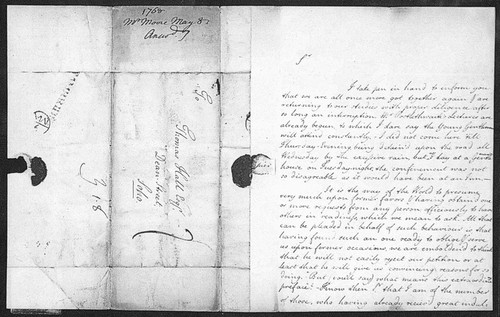 1768
Mr Moore May 8:
Answd
To
Thomas Hall Esqr
Dean Street
Soho
Sr
I take pen in hand to inform you
that we are all once more got together again & are
returning to our studies with proper diligence after
so long an interruption. Mr Lectures are
already begun, to which I dare say the Young Gentlemen
will attend constantly. I did not come here till
Thursday Evening being detain'd upon the road all
Wednesday by the excessive rain, but I lay at a
house on Tuesday night, the confinement was not
so disagreable as it would have been at an Inn.
It is the way of the World to presume
very much upon former favors & having obtain'd one
or more requests from any person officiously to
others in readiness which we mean to ask. All that
can be pleaded in behalf of such behaviour is that
having found such an one ready to oblige & serve
us upon former occasions, we are embolden'd to think
that he will not easily reject our petition or at
least that he will give us convincing reasons for so
doing. But, you'll say what means this extraordinary
preface? Know then Sr that I am of the number
of those, who having already receiv'd great